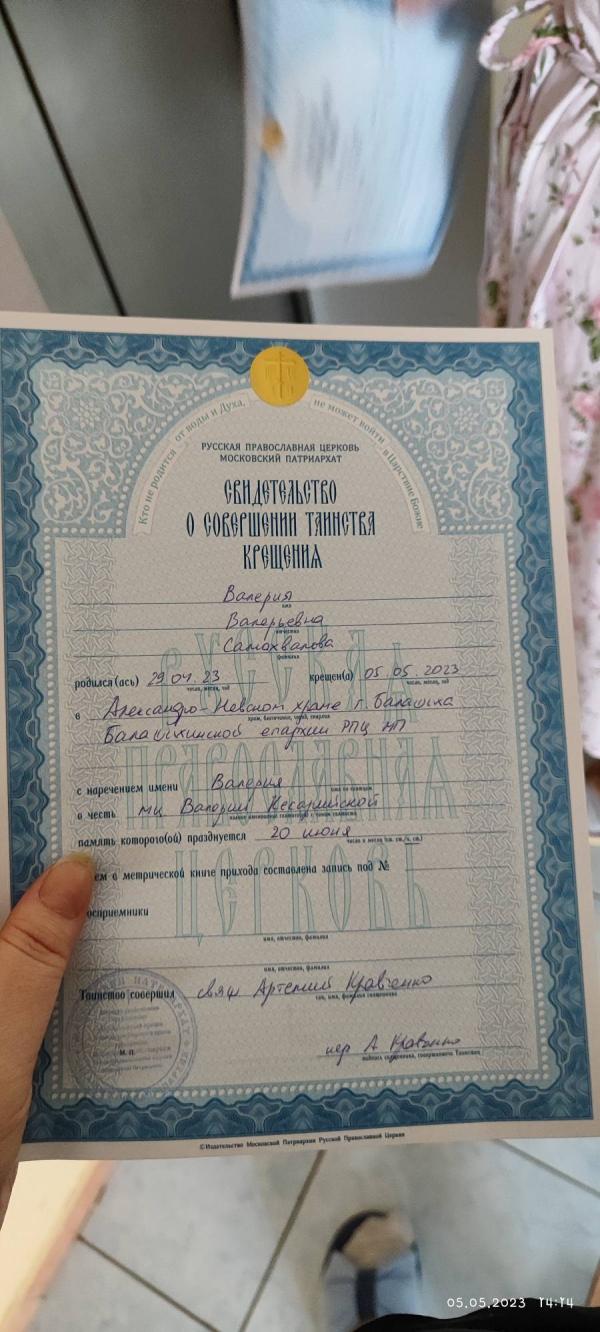 Кто не родится от воды и Духа, не может войти в Царствие Божие
РУССКАЯ ПРАВОСЛАВНАЯ ЦЕРКОВЬ
МОСКОВСКИЙ ПАТРИАРХАТ
СВИДЕТЕЛЬСТВО
О СОВЕРШЕНИИ ТАИНСТВА
КРЕЩЕНИЯ
Валерия
имя
Валерьевна
отчество
Самохвалова
фамилия
родился(ась) 29.04.23 крещен(а) 05.05.2023
число, месяц, год число, месяц, год
в Александро-Невском храме г. Балашиха
Балашихинской епархии РПЦ МП
РУССКАЯ
ПРАВОСЛАВНАЯ
ЦЕРКОВЬ
с наречением имени Валерия
в честь мц Валерии Кесарийской
память которого(ой) празднуется 20 июня
ем в метрической книге прихода составлена запись под №
осприемники
имя, отчество, фамилия
имя, отчество, фамилия
Таинство совершил свящ Артемий Кравченко
сан, имя, фамилия священника
М. П.
иер А Кравченко
подпись священника, совершившего Таинство
©Издательство Московской Патриархии Русской Православной Церкви
05.05.2023 14:14